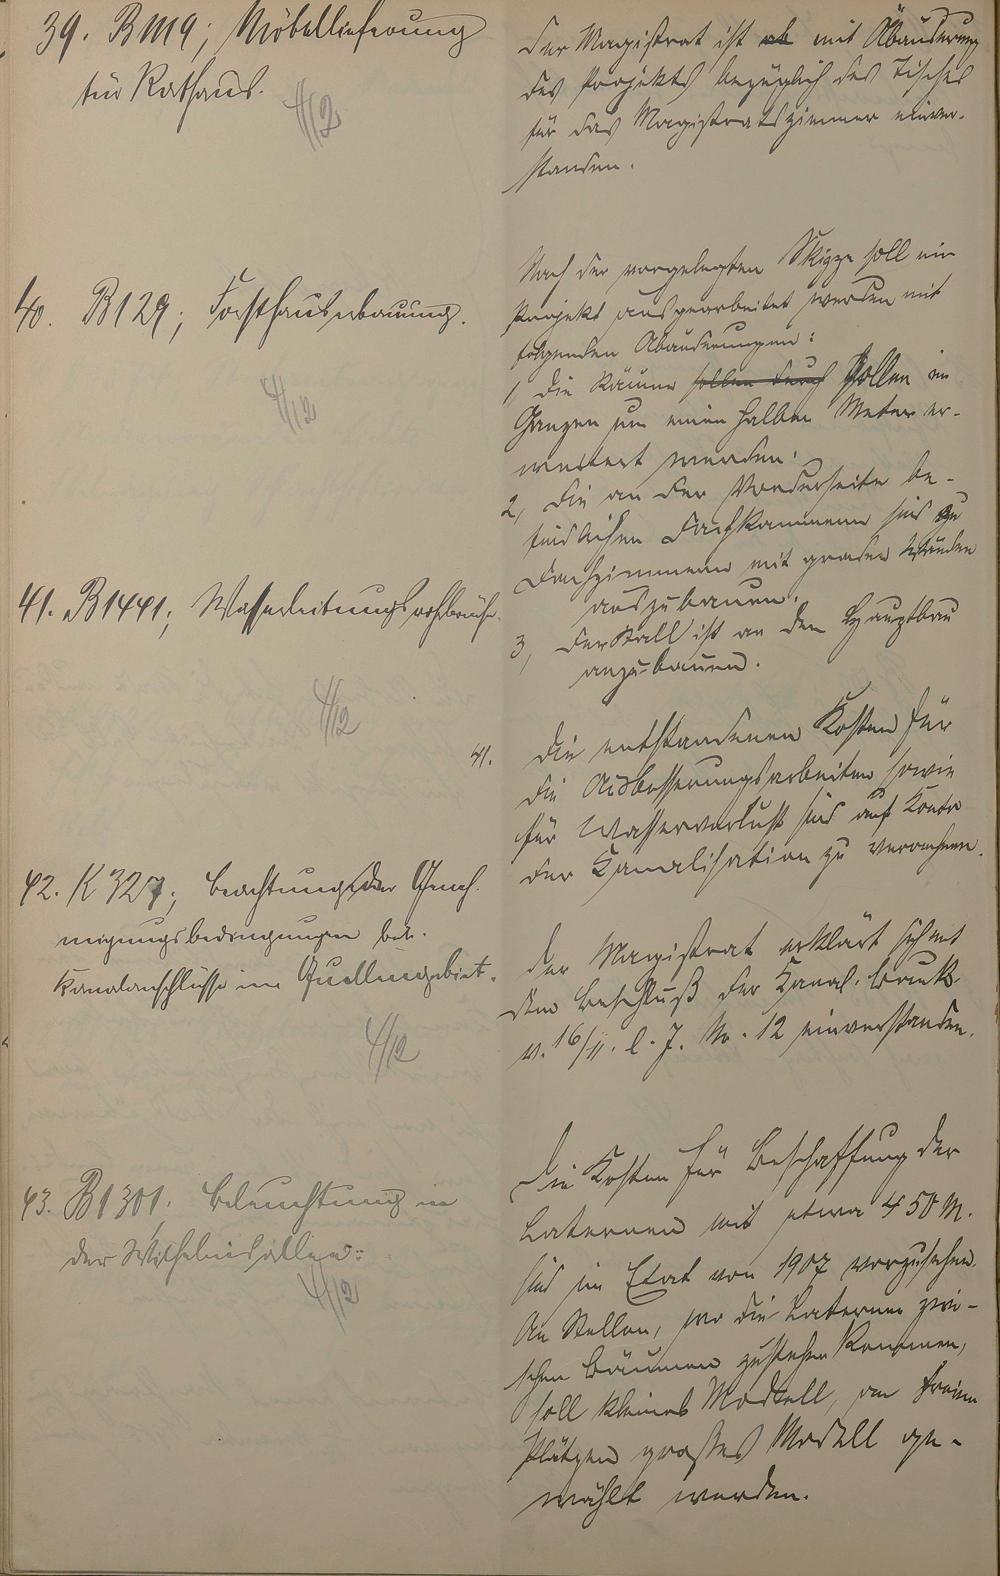 39. B 1119; Möbellieferung
für Rathaus.
4/12
Der Magistrat ist ab mit Abänderung
des Projekts bezüglich des Tisches
für das Magistratszimmer einver-
standen.
40. B 129; Forsthauserbauung.
4/12
Nach der vorgelegten Skizze soll ein
Projekt ausgearbeitet werden mit
folgenden Abänderungen:
1 Die Räume sollen durch sollen im
Ganzen um einen halben Meter er-
weitert werden.
2, Die an der Vorderseite be-
findlichen Dachkammern sind zu
Dachzimmern mit graden Wänden
auszubauen.
3, Der Stall ist an den Hauptbau
anzubauen.
41. B 1441; Wasserleitungsrohrbrüche.
4/12
41. Die entstandenen Kosten für
die Ausbesserungsarbeiten sowie
für Wasserverlust sind auf Konto
der Kanalisation zu verrechnen.
42. K 327; Beachtung der Geneh-
migungsbedingungen bei
Kanalanschlüsse im Quellengebiet.
4/12
Der Magistrat erklärt sich mit
dem Beschluß der Kanal.
v. 16/11. l. J. No. 12 einverstanden.
43. B 1301. Beleuchtung in
der Wilhelmsallee.
4/12
Die Kosten für Beschaffung der
Laternen mit etwa 450 M.
sind im Etat von 1907 vorzusehen.
An Stellen, wo die Laternen zwi-
schen Bäumen zustehen kommen,
soll kleines Modell, an freien
Plätzen großes Modell ge-
wählt werden.